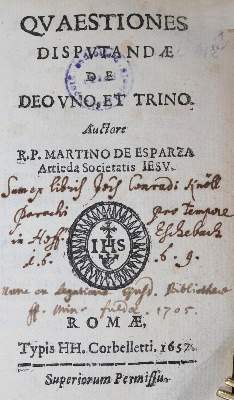 QVAESTIONES
DISPVTANDÆ
DE
DEO VNO, ET TRINO.
Auctore
R.P. MARTINO DE ESPARZA
Artieda Societatis IESV.
Sum ex libris Jois Conradi Knöll
Parochi pro tempore
in Hoff Eschebach
IHS
1. 6. 6. 9.
Nunc Bibliothecæ
ff. Min. fuldæ 1705.
ROMÆ,
Typis HH. Corbelletti. 1657.
Superiorum Permissu.